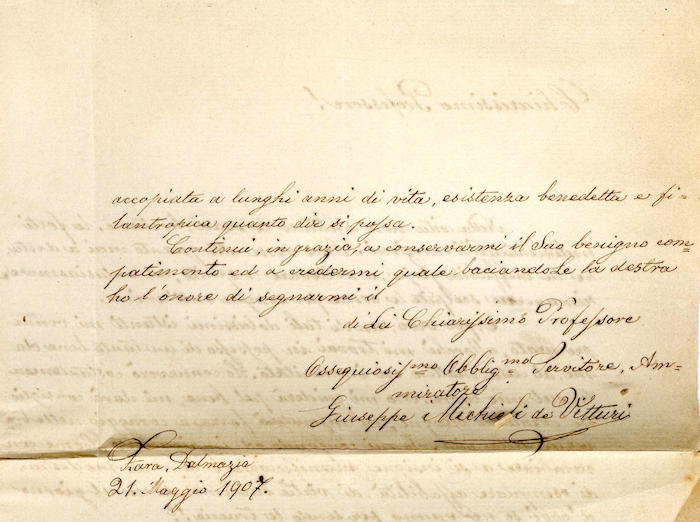 accopiata a lunghi anni di vita, esistenza benedetta e fi=
lantropica quanto dir si possa.
Continui, in grazia, a conservarmi il Suo benigno com=
patimento ed a credermi quale baciandole la destra
ho l'onore di segnarmi il
di Lei Chiarissimo Professore
Ossequiosissmo Obbligmo Servitore, Am=
miratore
Giuseppe Michieli de Vitturi
Zara, Dalmazia
21. Maggio 1907.